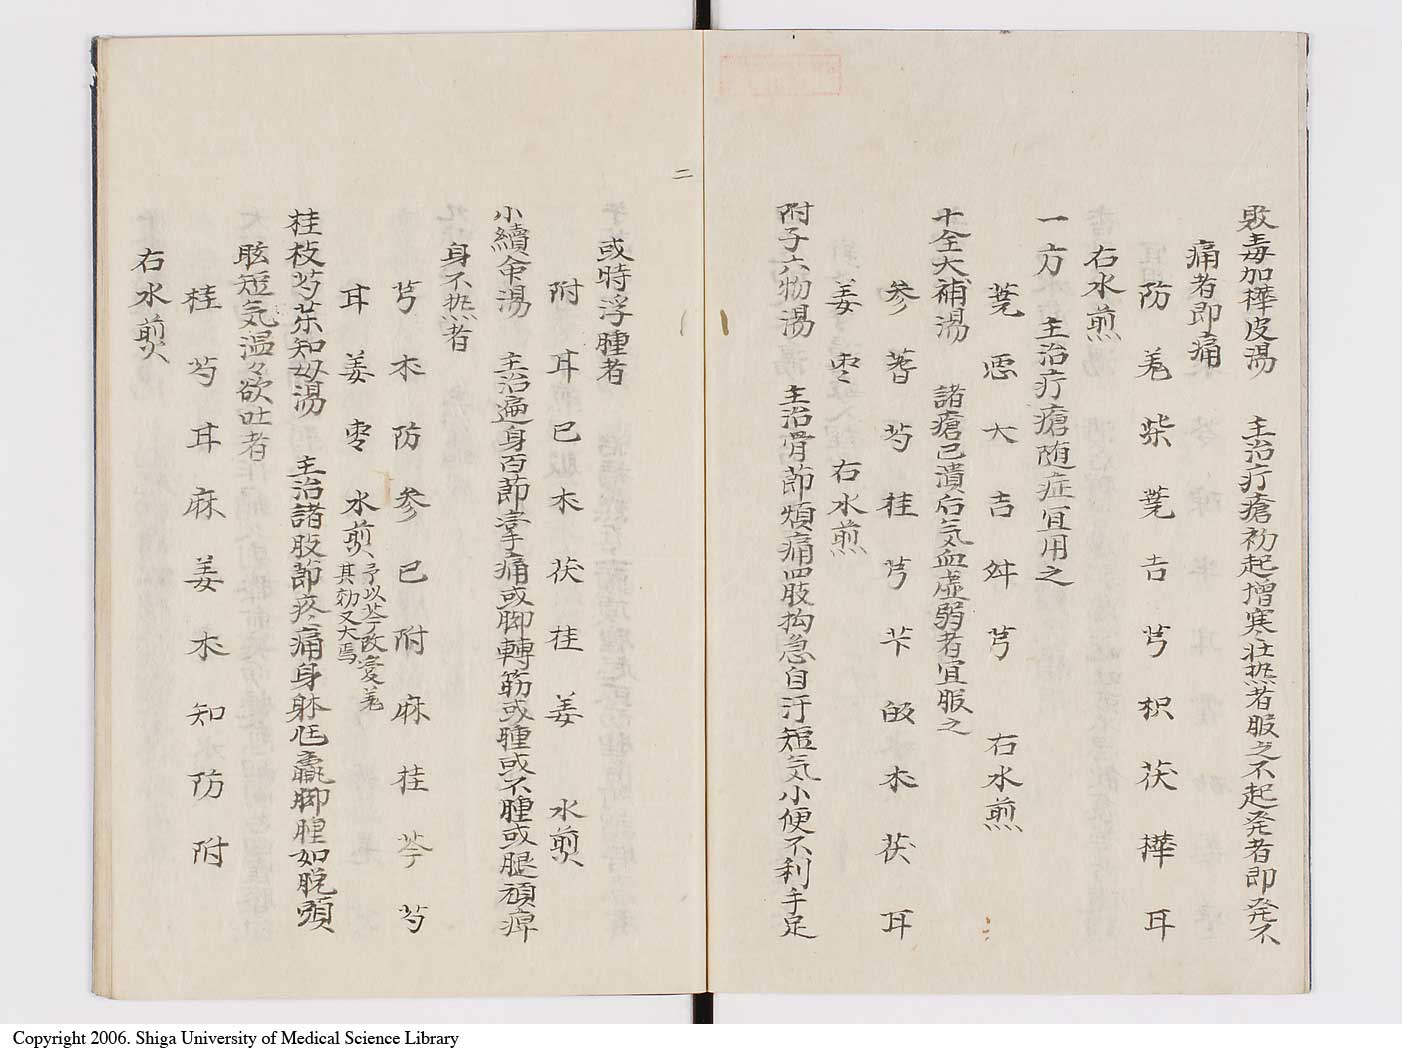 敗毒加樺皮湯　主治疔瘡初起増寒壮热者服之不起発者即発不
痛者即痛
防　羗　柴　莄　吉　芎　枳　茯　樺　耳
右水煎
一方　主治疔瘡随症宜用之
莄　悪　大　吉　舛　芎　右水煎
十全大補湯　諸瘡已潰后気血虚弱者宜服之
參　蓍　芍　桂　芎　芐　皈　朮　茯　耳
姜　枣　右水煎
附子六物湯　主治骨節煩痛四肢拘急自汗短気小便不利手足
二
或時浮腫者
附　耳　已　朮　茯　桂　姜　水煎
小續命湯　主治遍身百節掌痛或脚轉筋或腫或不腫或腿頑痺
身不热者
芎　朮　防　參　已　附　麻　桂　芩　芍
耳　姜　枣　水煎　予以芩改変羗
其効又大焉
桂枝芍茱知母湯　主治諸肢節疼痛身躰尫羸脚腫如脱頭
眩短気温々欲吐者
桂　芍　耳　麻　姜　朮　知　防　附
右水煎
Copyright 2006. Shiga University of Medical Science Library